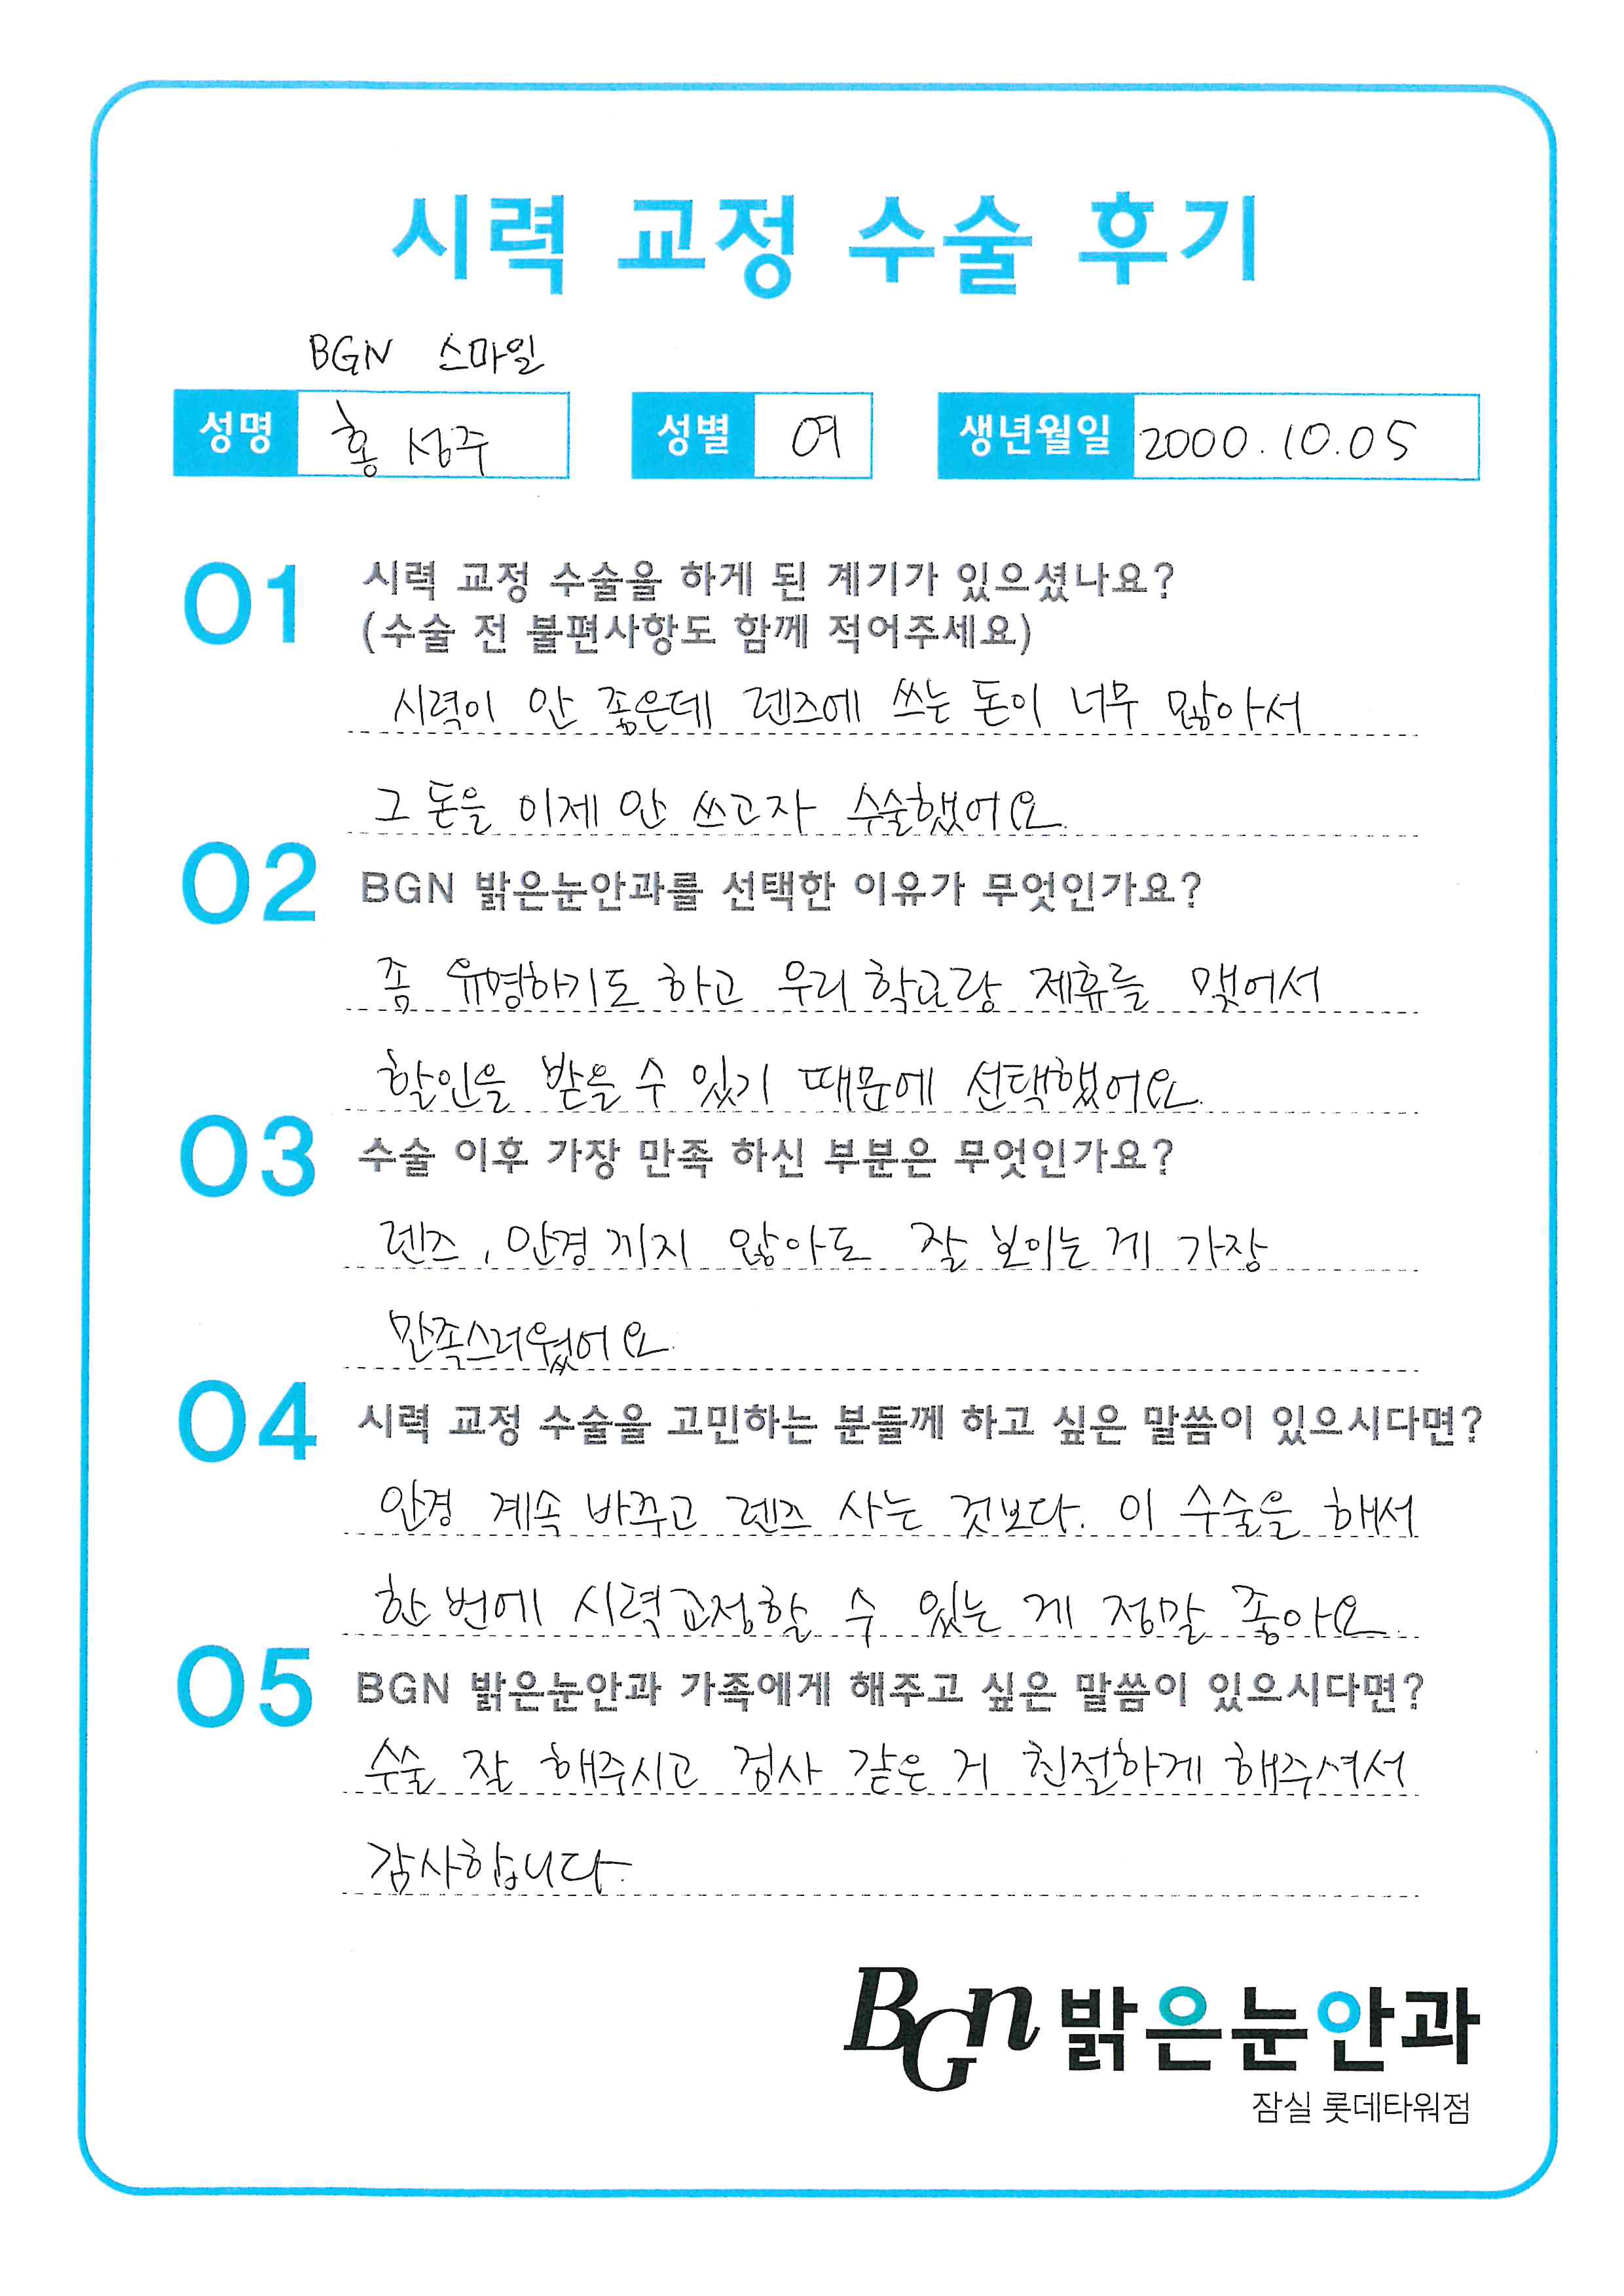 시력 교정 수술 후기
BGN 스마일
성명 홍성주 성별 여 생년월일 2000.10.05
01 시력 교정 수술을 하게 된 계기가 있으셨나요?
(수술 전 불편사항도 함께 적어주세요)
시력이 안 좋은데 렌즈에 쓰는 돈이 너무 많아서
그 돈을 이제 안 쓰고자 수술했어요.
02 BGN 밝은눈안과를 선택한 이유가 무엇인가요?
좀 유명하기도 하고 우리 학교랑 제휴를 맺어서
할인을 받을 수 있기 때문에 선택했어요.
03 수술 이후 가장 만족 하신 부분은 무엇인가요?
렌즈, 안경 끼지 않아도 잘 보이는 게 가장
만족스러웠어요.
04 시력 교정 수술을 고민하는 분들께 하고 싶은 말씀이 있으시다면?
안경 계속 바꾸고 렌즈 사는 것보다. 이 수술을 해서
한 번에 시력교정할 수 있는 게 정말 좋아요.
05 BGN 밝은눈안과 가족에게 해주고 싶은 말씀이 있으시다면?
수술 잘 해주시고 검사 같은 거 친절하게 해주셔서
감사합니다.
BGN 밝은눈안과
잠실 롯데타워점